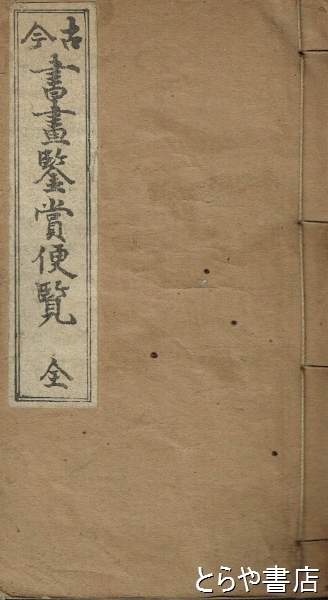 古今
書畫鑒賞便覧
全
とらや書店